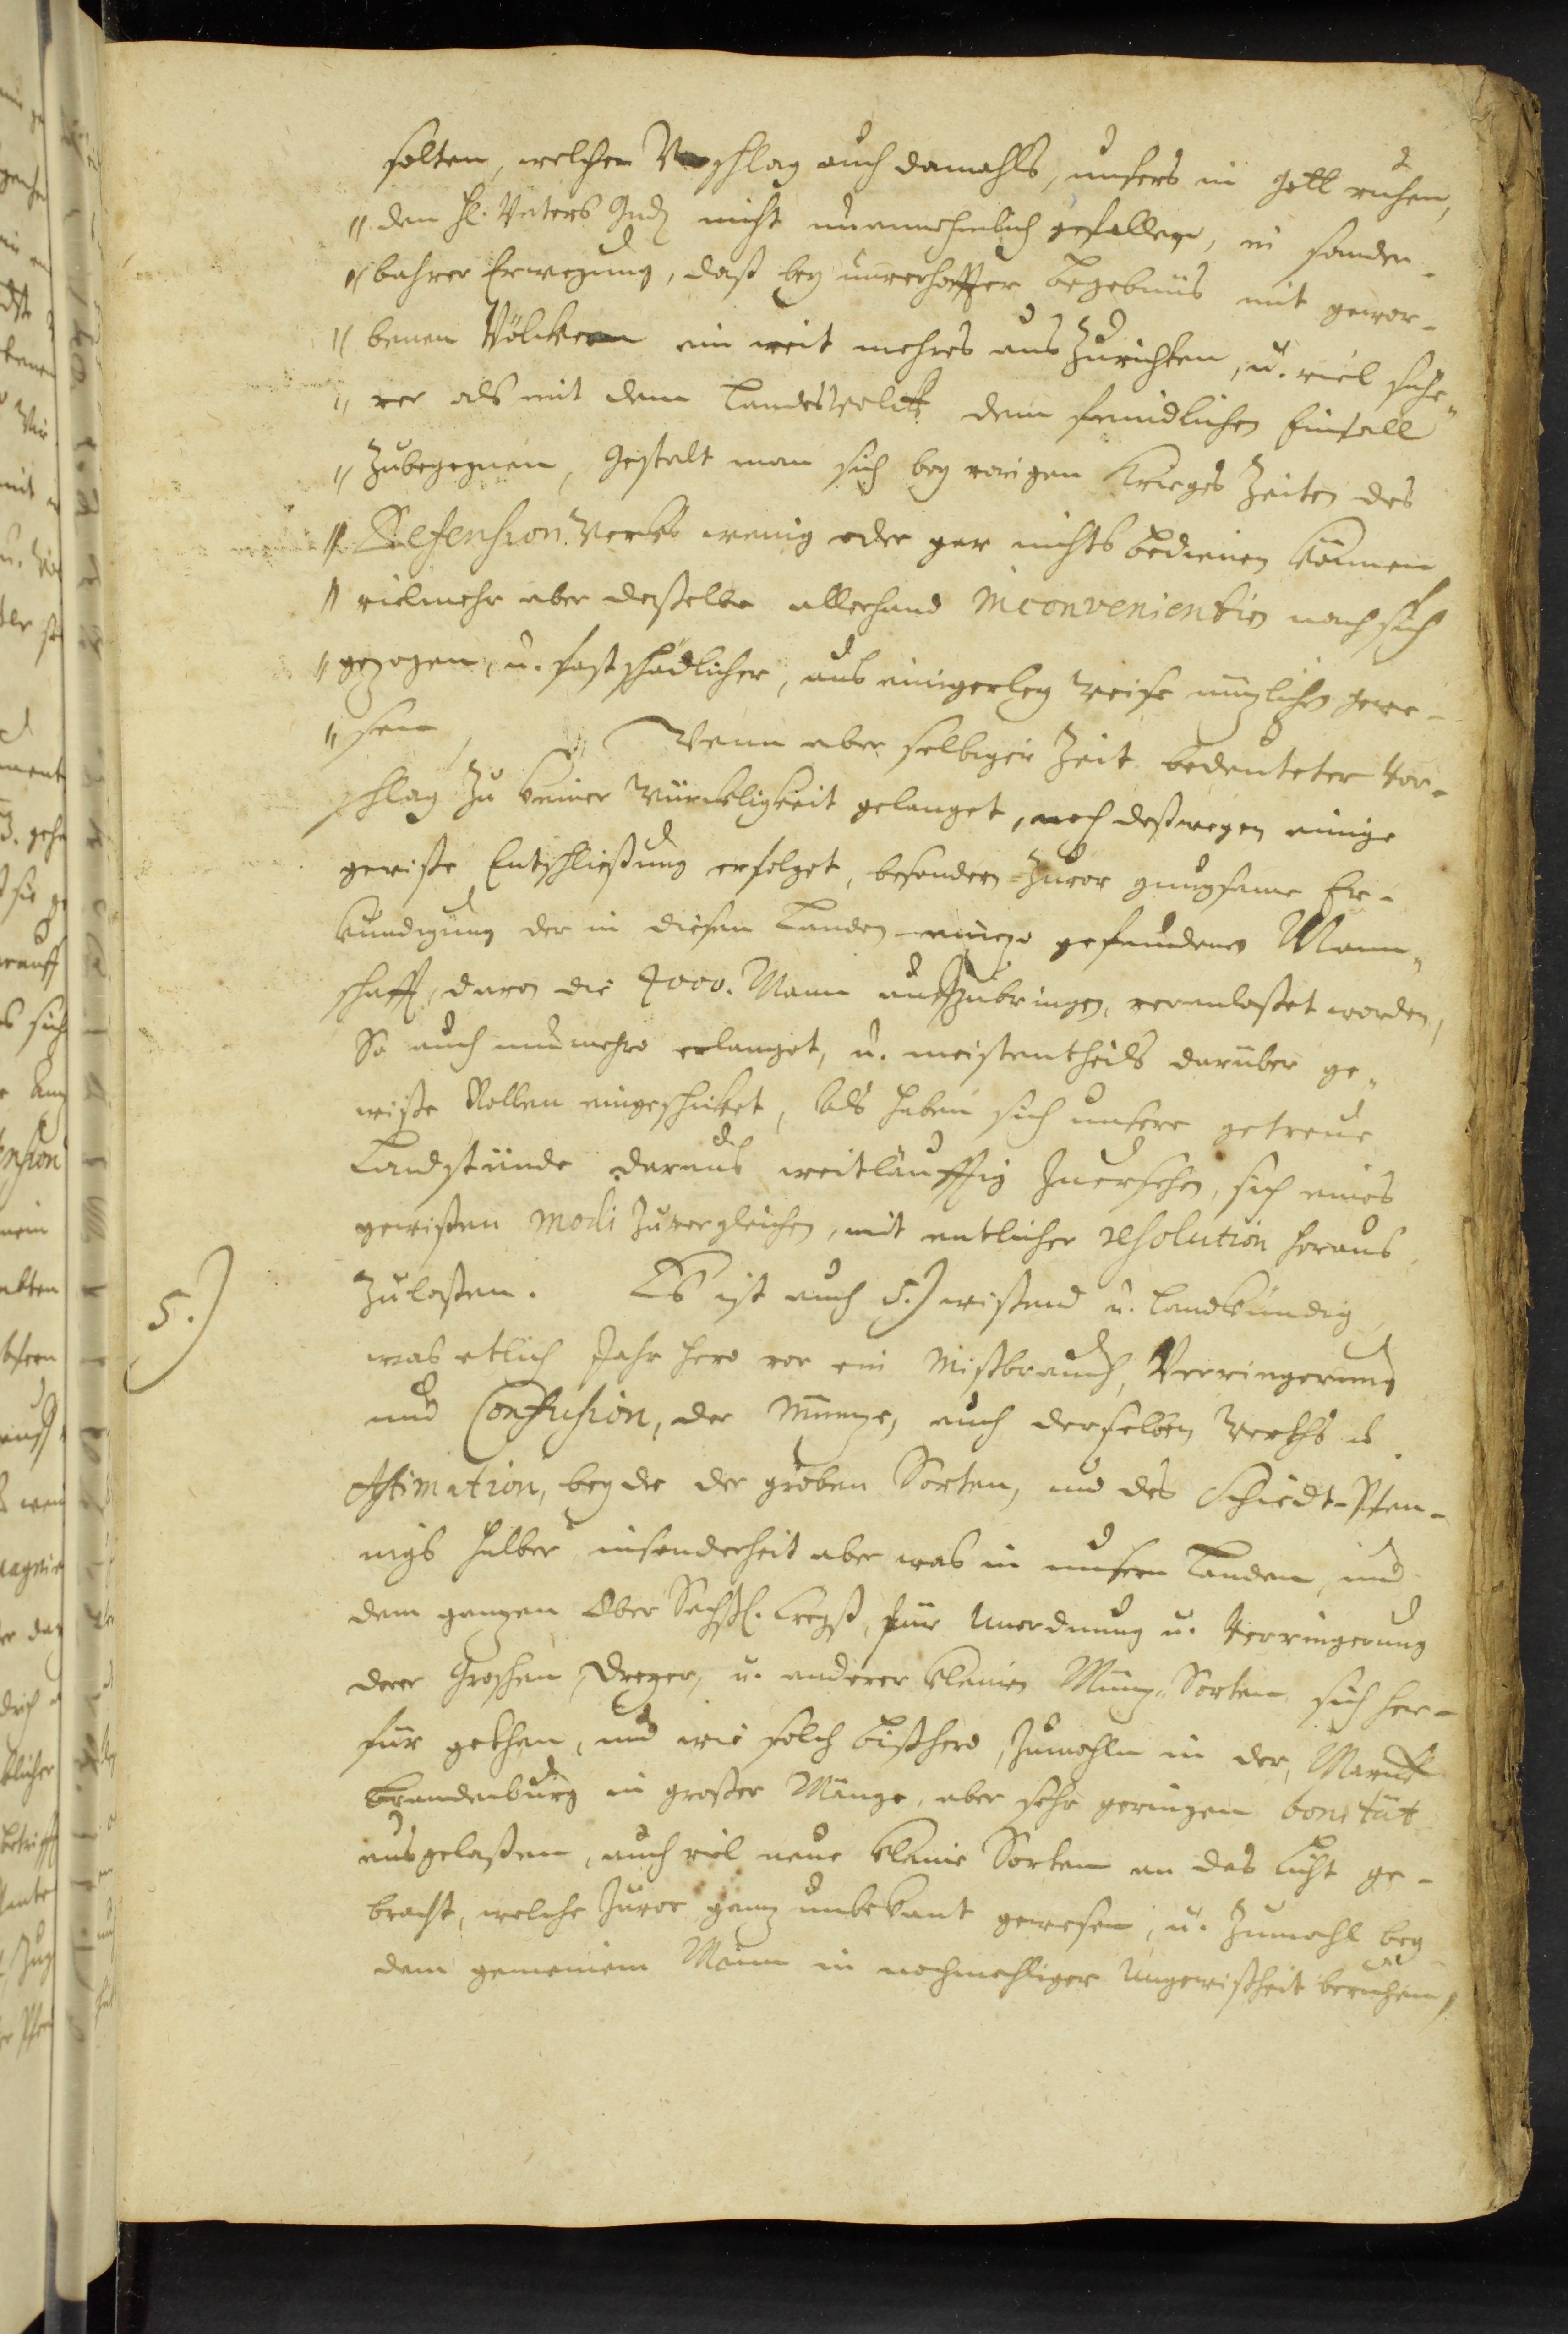 solten, welcher Vorschlag auch damahls, unsers in Gott ruhen,
" den H. Vaters Gnd. nicht unannehmlich gefallen, in sonder-
" bahrer Erwegung, daß bey unverhoffter begebnüs mit gewor-
" benen Völckern ein weit mehres aus Zurichten, u. viel siche-
" rer als mit dem Landes Volck dem feindlichen Einfall
" Zubegegnen, Gestalt man sich bey vorigen Krieges Zeiten des
" Defension Wercks wenig oder gar nichts bedienen können
" vielmehr aber dasselbe allerhand inconvenientien nach sich
" gezogen, u. fast schädlicher, als einigerley Weise nüzlichen gewe-
" sen, Wenn aber selbiger Zeit bedeuteter Vor-
schlag Zu keiner Würckligkeit gelanget, noch deßwegen einige
gewiße Entschließung erfolget, besondern Zuvor gnugsame Er-
kundigung der in diesen Landen gefundenen Mann-
schafft, davon die 4000. Mann aufzubringen, veranlaßet worden,
So auch nunmehro erlanget, u. meistentheils darüber ge-
wiße Rollen eingeschicket, Als haben sich unsere getreue
Landstände daraus weitläufftig Zuersehen, sich eines
gewißen modi Zuvergleichen, mit entlicher resolution heraus
Zulaßen. Es ist auch 5.) wißend u. Landkündig,
5.)
was etlich Jahr hero vor ein Mißbrauch, Verringerung
und Confusion, der Münze, auch derselben Werths u.
Æstimation, beyde der groben Sorten, und des Schiedt-Pfen-
nigs halber insonderheit aber was in unsern Landen, und
dem ganzen Ober Sächß. Creyß, für Unordnung u. Verringerung
derer Groschen, Dreyer, u. anderer kleinen Münz-Sorten sich her-
für gethan, und wie solch bißhero, Zumahln in der Marck
Brandenburg in großer Mänge, aber sehr geringen bonität
ausgelaßen, auch viel neue kleine Sorten an das Licht ge-
bracht, welche Zuvor ganz unbekant gewesen, u. Zumahl bey
dem gemeinem Mann in nochmahliger Ungewißheit beruhen,